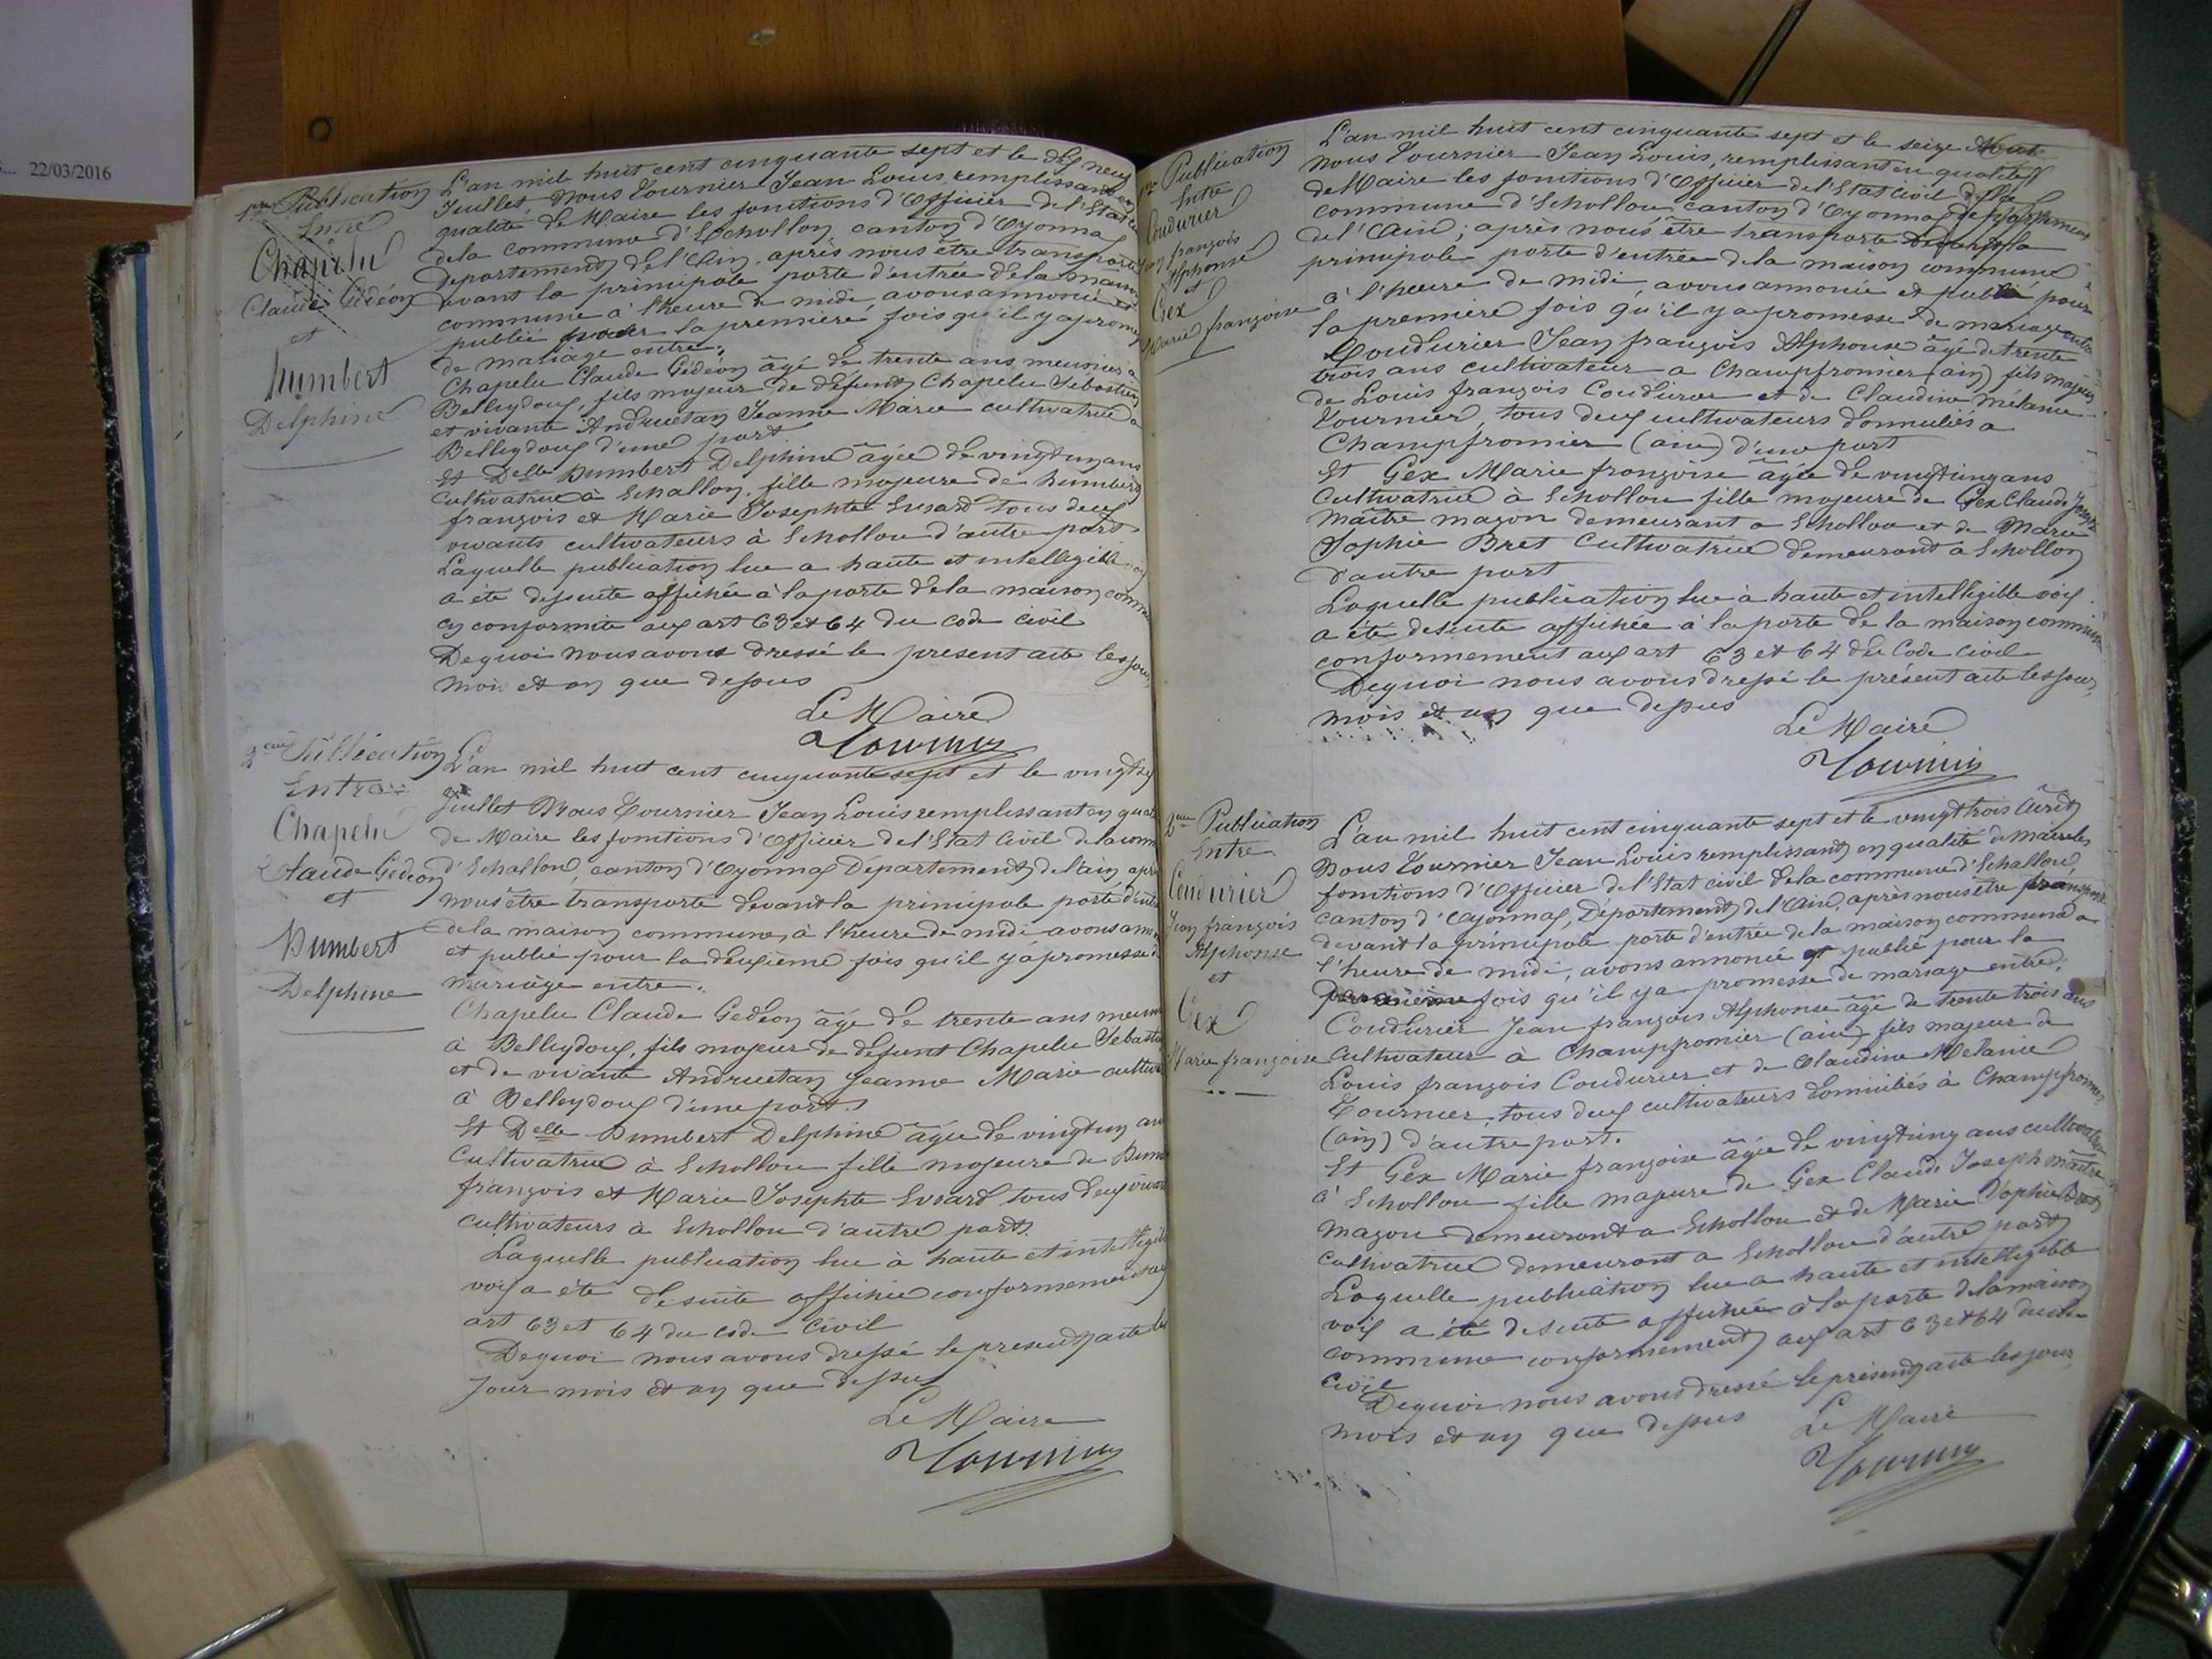 ... 22/03/2016
1ere Publication
Entre
Chapelu
Claude Gédéon
et
humbert
Delphine
L'an mil huit cent cinquante sept et le dix neuf
Juillet Nous Tournier Jean Louis, remplissant en
qualité de Maire les fonctions d'Officier de l'Etat
de la commune d'Echallon, canton d'Oyonnax
Departement de l'Ain, après nous être transporté
devant la principale porte d'entrée de la maison
commune à l'heure de midi, avons annoncé et
publié pour la première fois qu'il y a
de mariage entre.
Chapelu Claude Gédéon âgé de trente ans meunier à
Belleydoux, fils majeur de défunt Chapelu Sébastien
et vivante Andruetan Jeanne Marie cultivatrice à
Belleydoux d'une part
Et Delle Humbert Delphine âgée de vingt un ans
Cultivatrice à Echallon, fille majeure de humbert
françois et Marie Josephte Evrard tous deux
vivants cultivateurs à Echallon d'autre part
Laquelle publication lue a haute et intelligible
a été desuite affichée à la porte de la maison
en conformité aux art 63 et 64 du Code civil
De quoi nous avons dressé le present acte les jour,
mois et an que dessus
Le Maire
Tournier
2eme Publication
Entre
Chapelu
Claude Gédéon
et
Humbert
Delphine
L'an mil huit cent cinquante sept et le vingt six
Juillet Nous Tournier Jean Louis remplissant en
de Maire les fonctions d'Officier de l'Etat Civil de la
d'Echallon, canton d'Oyonnax Département de l'ain après
nous être transporté devant la principale porte d'entrée
de la maison commune, à l'heure de midi avons
et publié pour la deuxième fois qu'il y a promesse de
mariage entre.
Chapelu Claude Gedéon âgé de trente ans meunier
à Belleydoux, fils majeur de défunt Chapelu
et de vivante Andruetan Jeanne Marie
à Belleydoux d'une part.
Et Delle Humbert Delphine âgée de vingt un ans
Cultivatrice à Echallon fille majeure de
françois et Marie Josephte Evrard tous deux vivants
cultivateurs à Echallon d'autre part.
Laquelle publication lue à haute et intelligible
voix a été desuite affichée conformement aux
art 63 et 64 du code civil
De quoi nous avons dressé le present acte les
jour mois et an que dessus
Le Maire
Tournier
1ere Publication
Entre
Coudurier
Jean françois
Alphonse
et
Gex
Marie françoise
L'an mil huit cent cinquante sept et le seize Aout
Nous Tournier Jean Louis, remplissant en qualité
de Maire les fonctions d'Officier de l'Etat Civil de la
commune d'Echallon, canton d'Oyonnax departement
de l'Ain; après nous être transporté devant la
principale porte d'entrée de la maison commune
à l'heure de midi avons annoncé et publié pour
la première fois qu'il y a promesse de mariage entre
Coudurier Jean françois Alphonse âgé de trente
trois ans cultivateur a Champfromier (ain) fils majeur
de Louis françois Coudurier et de Claudine Melanie
Tournier, tous deux cultivateurs domiciliés a
Champfromier (ain) d'une part
Et Gex Marie françoise âgée de vingt un ans
Cultivatrice à Echallon fille majeure de Gex Claude Joseph
Maître maçon demeurant a Echallon et de Marie
Sophie Bret Cultivatrice demeurant à Echallon
d'autre part
Laquelle publication lue à haute et intelligible voix
a été desuite affichée à la porte de la maison commune
conformement aux art 63 et 64 du Code Civil
De quoi nous avons dressé le présent acte les jour,
mois et an que dessus
Le Maire
Tournier
2eme Publication
Entre
Coudurier
Jean françois
Alphonse
et
Gex
Marie françoise
L'an mil huit cent cinquante sept et le vingt trois Août
Nous Tournier Jean Louis remplissant en qualité de Maire les
fonctions d'Officier de l'Etat civil de la commune d'Echallon,
canton d'Oyonnax, Département de l'Ain, après nous être transporté
devant la principale porte d'entrée de la maison commune a
l'heure de midi, avons annoncé et publié pour la
fois qu'il y a promesse de mariage entre.
Coudurier Jean françois Alphonse âgé de trente trois ans
Cultivateur à Champfromier (ain) fils majeur de
Louis françois Coudurier et de Claudine Melanie
Tournier, tous deux cultivateurs domiciliés à Champfromier
(ain) d'autre part.
Et Gex Marie françoise âgée de vingt un ans cultivatrice
à Echallon fille majeure de Gex Claude Joseph maître
maçon demeurant a Echallon et de Marie Sophie Bret
cultivatrice demeurant a Echallon d'autre part
Laquelle publication lue a haute et intelligible
voix a été desuite affichée à la porte de la maison
commune conformement aux art 63 et 64 du code
civil
De quoi nous avons dressé le présent acte les jour
mois et an que dessus
Le Maire
Tournier